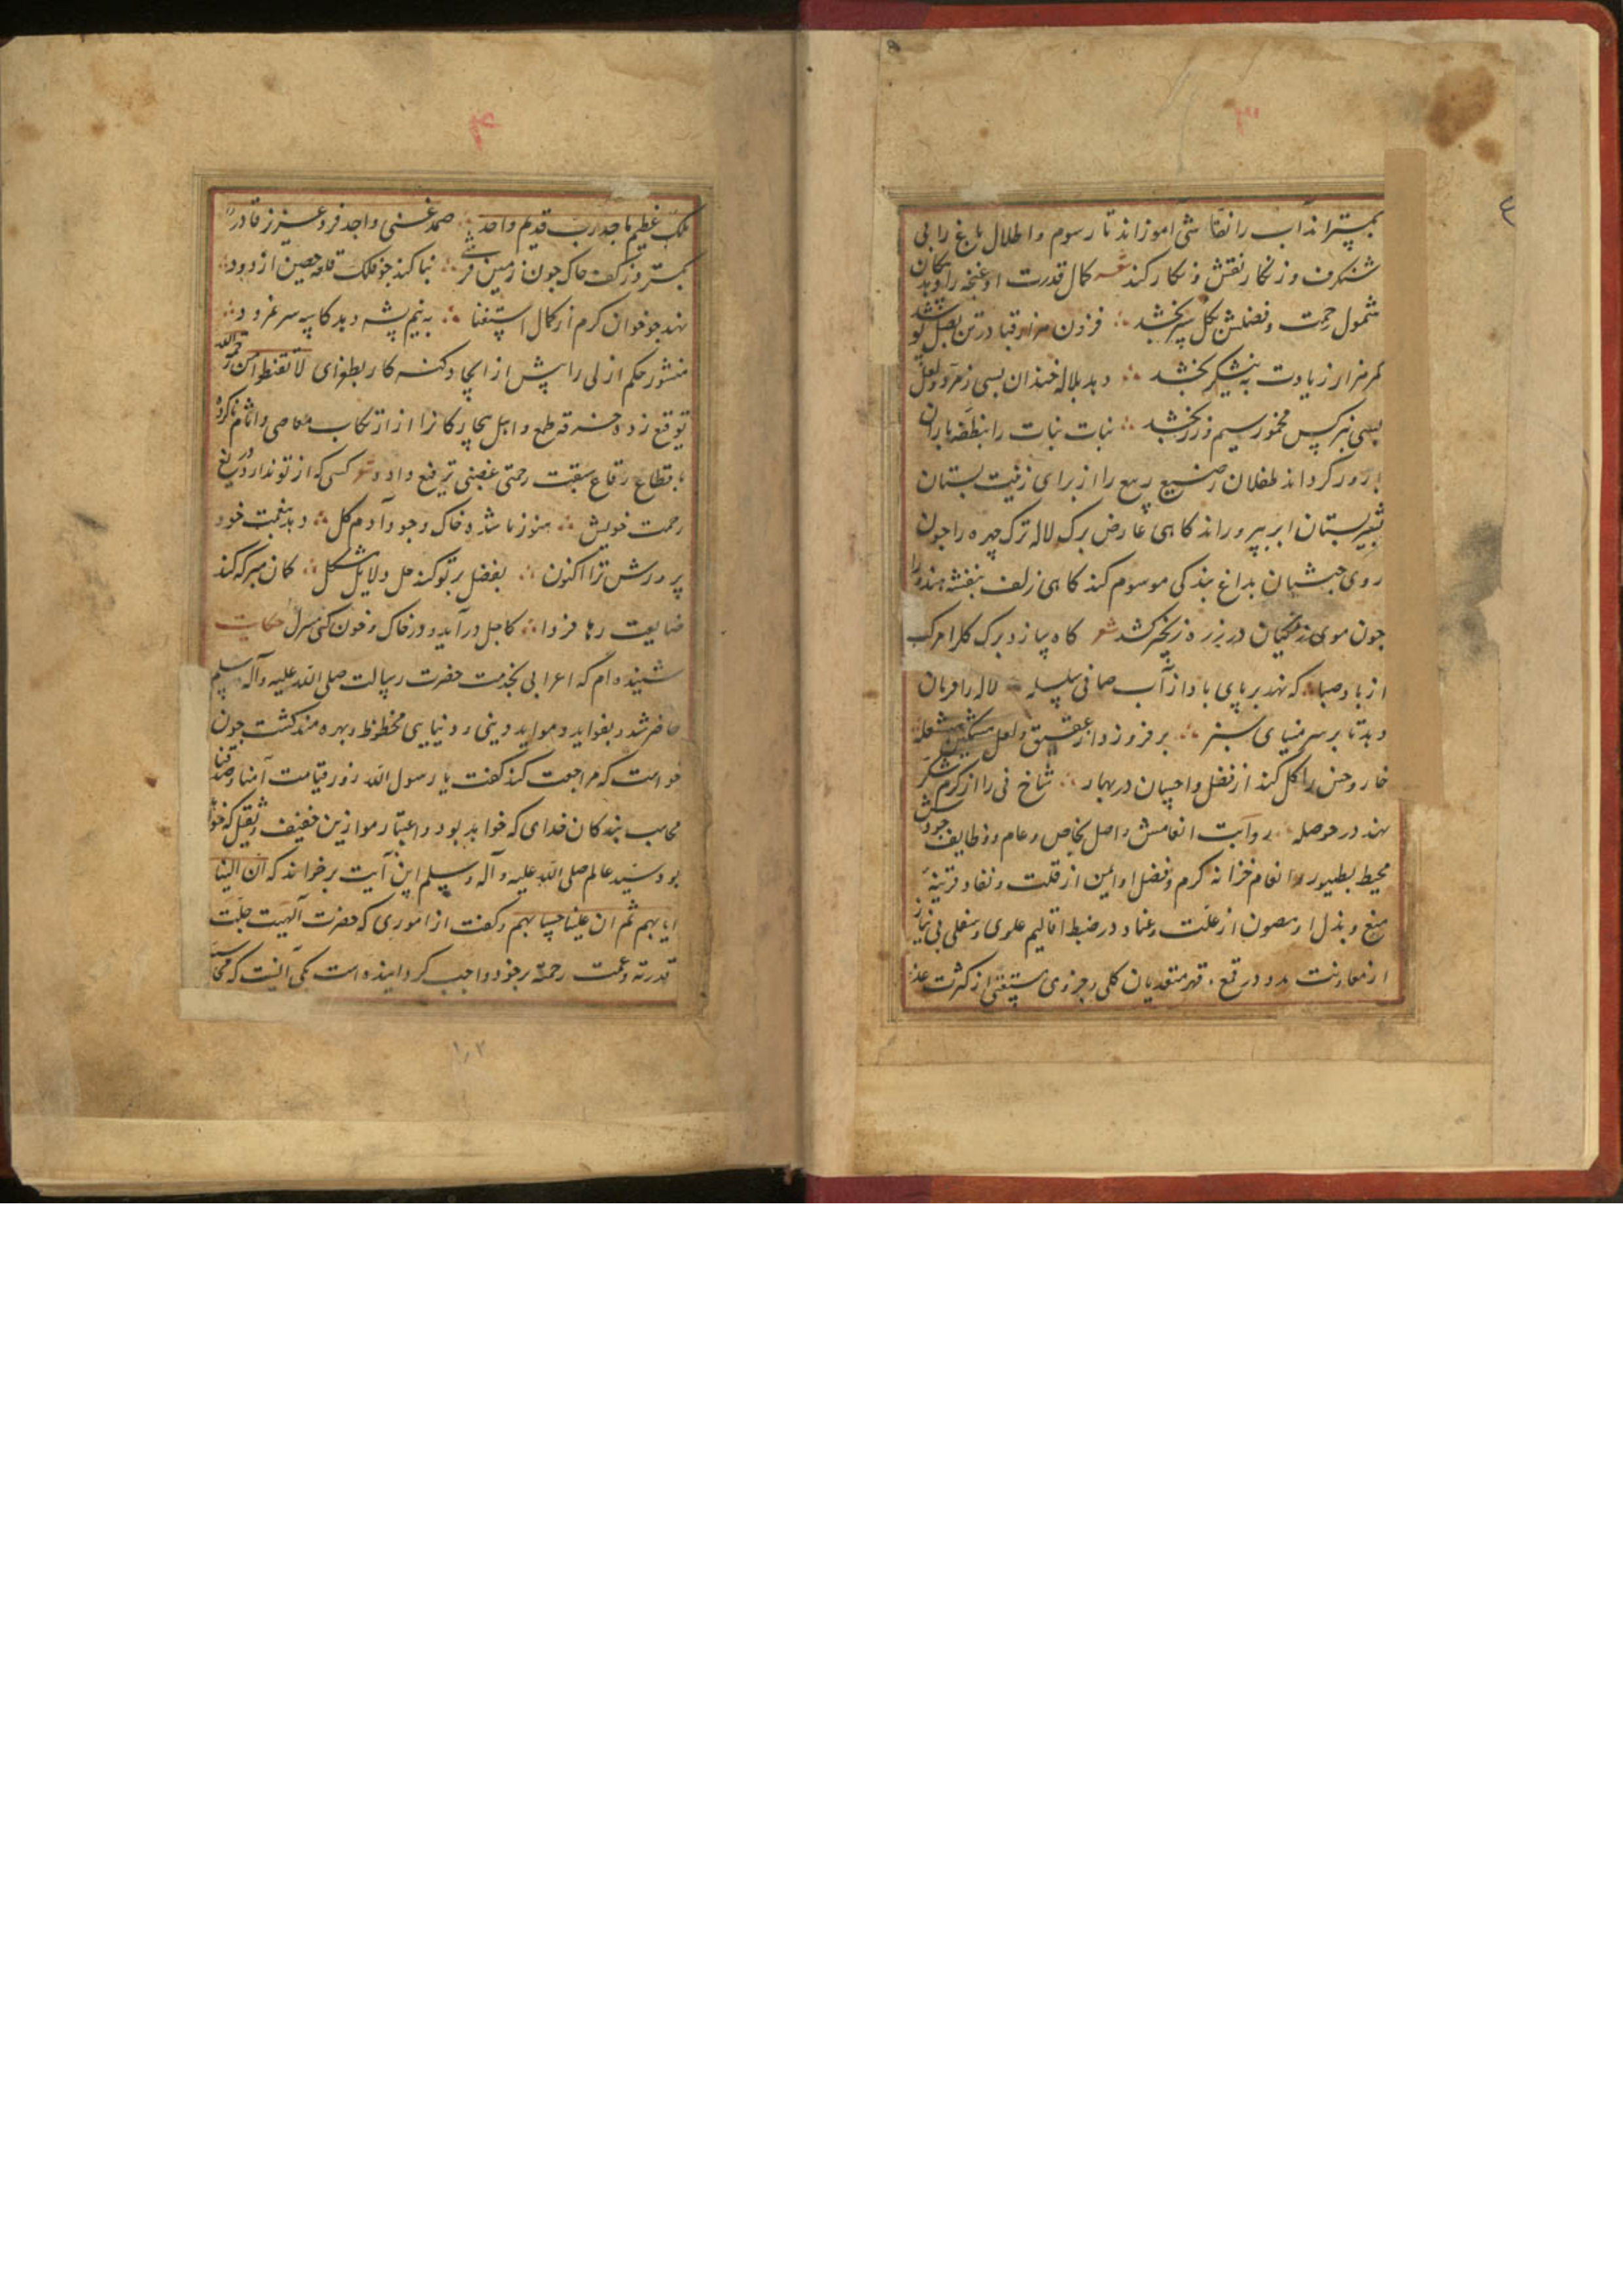 ۳
بستراند آب را نقاشی اموزاند تا رسوم و اطلال باغ را بی
شنکرف و زنکار نقش و نکار کند شعر کمال قدرت او غنچه را دهد پیکان
شمول رحمت و فضلش بکل سپر بخشد ∴ فزون هزار قبا در تن بصل
کمر هزار زیادت به نیشکر بخشد ∴ دهد بلاله خندان بسی زمرد و لعل
بسی بنرکس مخمور سیم و زر بخشد ∴ نبات نبات را بنطفه باران
بارور کرداند طفلان رضیع ربیع را از برای زینت بستان
بشیر بستان ابر بپروراند کاهی عارض برک لاله ترک چهره را چون
روی حبشیان بداغ بندکی موسوم کند کاهی زلف بنفشه هندو را
چون موی زنکیان در زره زنجیر کشد شعر کاه پیازد برک کلرا مرک
از باد صبا ∴ که نهد بر پای باد از آب صافی سلسله ∴ لاله را فرمان
دهد تا بر سر مینای سبز ∴ بر فروزد از عقیق و لعل مشکین مشعله
خار و خس را کل کند از فضل و احسان در بهار ∴ شاخ نی را از کرم شکر
نهد در حوصله ∴ روایت انعامش واصل بخاص و عام و وظایف جودش
محیط بطیور و انعام خزانه کرم و فضل او ایمن از قلت و نفاد قرینه
منع و بذل او مصون از علت و عناد در ضبط اقالیم علوی و سفلی بی نیاز
از معاونت مدد در قمع و قهر متعدیان کلی و جزوی مستغنی از کثرت عدد
۴
ملک عظیم ماجد رب قدیم واحد ∴ صمد غنی واجد فرد عزیز قادر
بسترد ز کف خاک چون زمین فرشی ∴ بنا کند چو فلک قلعه حصین از دود ∴
نهد چو خوان کرم از کمال استغنا ∴ به نیم پشه دهد کاسه سر نمرود ∴
منشور حکم ازلی را پیش از ایجاد کنه کار بطغرای لا تقنطوا من رحمة الله
توقیع زده خرقه طمع و اهل بیچارکانرا از ارتکاب معاصی و اثام ناکرده
باقطاع رقاع سبقت رحمتی غضبی ترفیع داده شعر کسی که از تو ندارد دریغ
رحمت خویش ∴ هنوز ناشده خاک وجود آدم کل ∴ دهد بنعمت خود
پرورش ترا اکنون ∴ بفضل بر تو کند حل دلایل مشکل ∴ کمان مبر که کند
ضایعت رها فردا ∴ کاجل درآید و در خاک و خون کنی منزل حکایت
شنیده ام که اعرابی بخدمت حضرت رسالت صلی الله علیه و آله و سلم
حاضر شد و بفواید و مواید دینی و دنیایی محظوظ و بهره مند کشت چون
خواست که مراجعت کند کفت یا رسول الله روز قیامت آمنا و صدقنا
محاسب بندکان خدای که خواهد بود و اعتبار موازین خفیف و ثقیل که خواهد
بود سید عالم صلی الله علیه و آله و سلم این آیت برخواند که ان الینا
ایابهم ثم ان علینا حسابهم و کفت از اموری که حضرت آلهیت جلت
قدرته و عمت رحمته بر خود واجب کردانیده است یکی آنست که محاسب